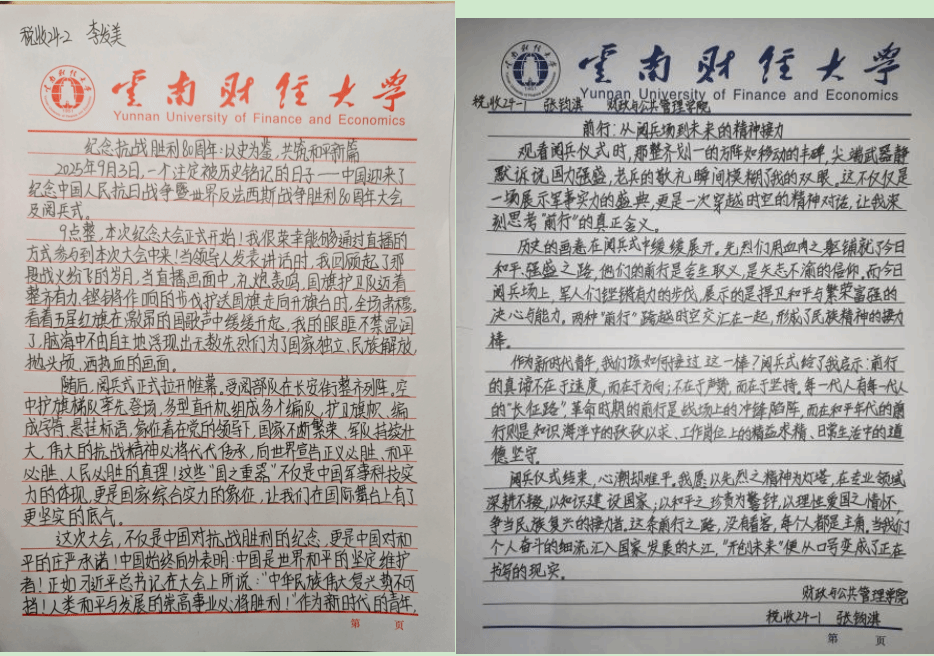 税收24-2 李发美
云南财经大学
Yunnan University of Finance and Economics
纪念抗战胜利80周年:以史为鉴,共筑和平新篇
2025年9月3日,一个注定被历史铭记的日子——中国迎来了
纪念中国人民抗日战争暨世界反法西斯战争胜利80周年大会
及阅兵式。
9点整,本次纪念大会正式开始!我很荣幸能够通过直播的
方式参与到本次大会中来!当领导人发表讲话时,我回顾起了那
段战火纷飞的岁月,当直播画面中,礼炮轰鸣,国旗护卫队迈着
整齐有力、铿锵作响的步伐护送国旗走向升旗台时,全场肃穆。
看着五星红旗在激昂的国歌声中缓缓升起,我的眼眶不禁湿润
了,脑海中不由自主地浮现出无数先烈们为了国家独立、民族解放,
抛头颅、洒热血的画面。
随后,阅兵式正式拉开帷幕。受阅部队在长安街整齐列阵,空
中护旗梯队率先登场,多型直升机组成多个编队,护卫旗帜、编
成字符、悬挂标语,象征着在党的领导下,国家不断繁荣、军队持续壮
大,伟大的抗战精神必将代代传承,向世界宣告正义必胜、和平
必胜、人民必胜的真理!这些“国之重器”不仅是中国军事科技实
力的体现,更是国家综合实力的象征,让我们在国际舞台上有了
更坚实的底气。
这次大会,不仅是中国对抗战胜利的纪念,更是中国对和
平的庄严承诺!中国始终向外表明:中国是世界和平的坚定维护
者!正如习近平总书记在大会上所说:“中华民族伟大复兴势不可
挡!人类和平与发展的崇高事业必将胜利!”作为新时代的青年,
第 页
云南财经大学
Yunnan University of Finance and Economics
税收24-1 张钧淇 财政与公共管理学院
前行:从阅兵场到未来的精神接力
观看阅兵仪式时,那整齐划一的方阵如移动的丰碑,尖端武器静
默诉说国力强盛,老兵的敬礼瞬间模糊了我的双眼。这不仅仅是
一场展示军事实力的盛典,更是一次穿越时空的精神对话,让我深
刻思考“前行”的真正含义。
历史的画卷在阅兵式中缓缓展开。先烈们用血肉之躯铺就了今日
和平、强盛之路,他们的前行是舍生取义,是矢志不渝的信仰。而今日
阅兵场上,军人们铿锵有力的步伐,展示的是捍卫和平与繁荣富强的
决心与能力。两种“前行”跨越时空交汇在一起,形成了民族精神的接力
棒。
作为新时代青年,我们该如何接过这一棒?阅兵式给了我启示:前行
的真谛不在于速度,而在于方向;不在于声势,而在于坚持。每一代人有每一代人
的“长征路”,革命时期的前行是战场上的冲锋陷阵,而在和平年代的前
行则是知识海洋中的孜孜以求、工作岗位上的精益求精、日常生活中的道
德坚守。
阅兵仪式结束,心潮却难平。我愿以先烈之精神为灯塔,在专业领域
深耕不辍,以知识建设国家;以和平之珍贵为警钟,以理性爱国之情怀,
争当民族复兴的接力者,这条前行之路,没有看客,每个人都是主角,当我们
个人奋斗的细流汇入国家发展的大江,“开创未来”便从口号变成了正在
书写的现实。
财政与公共管理学院
税收24-1 张钧淇
第 页